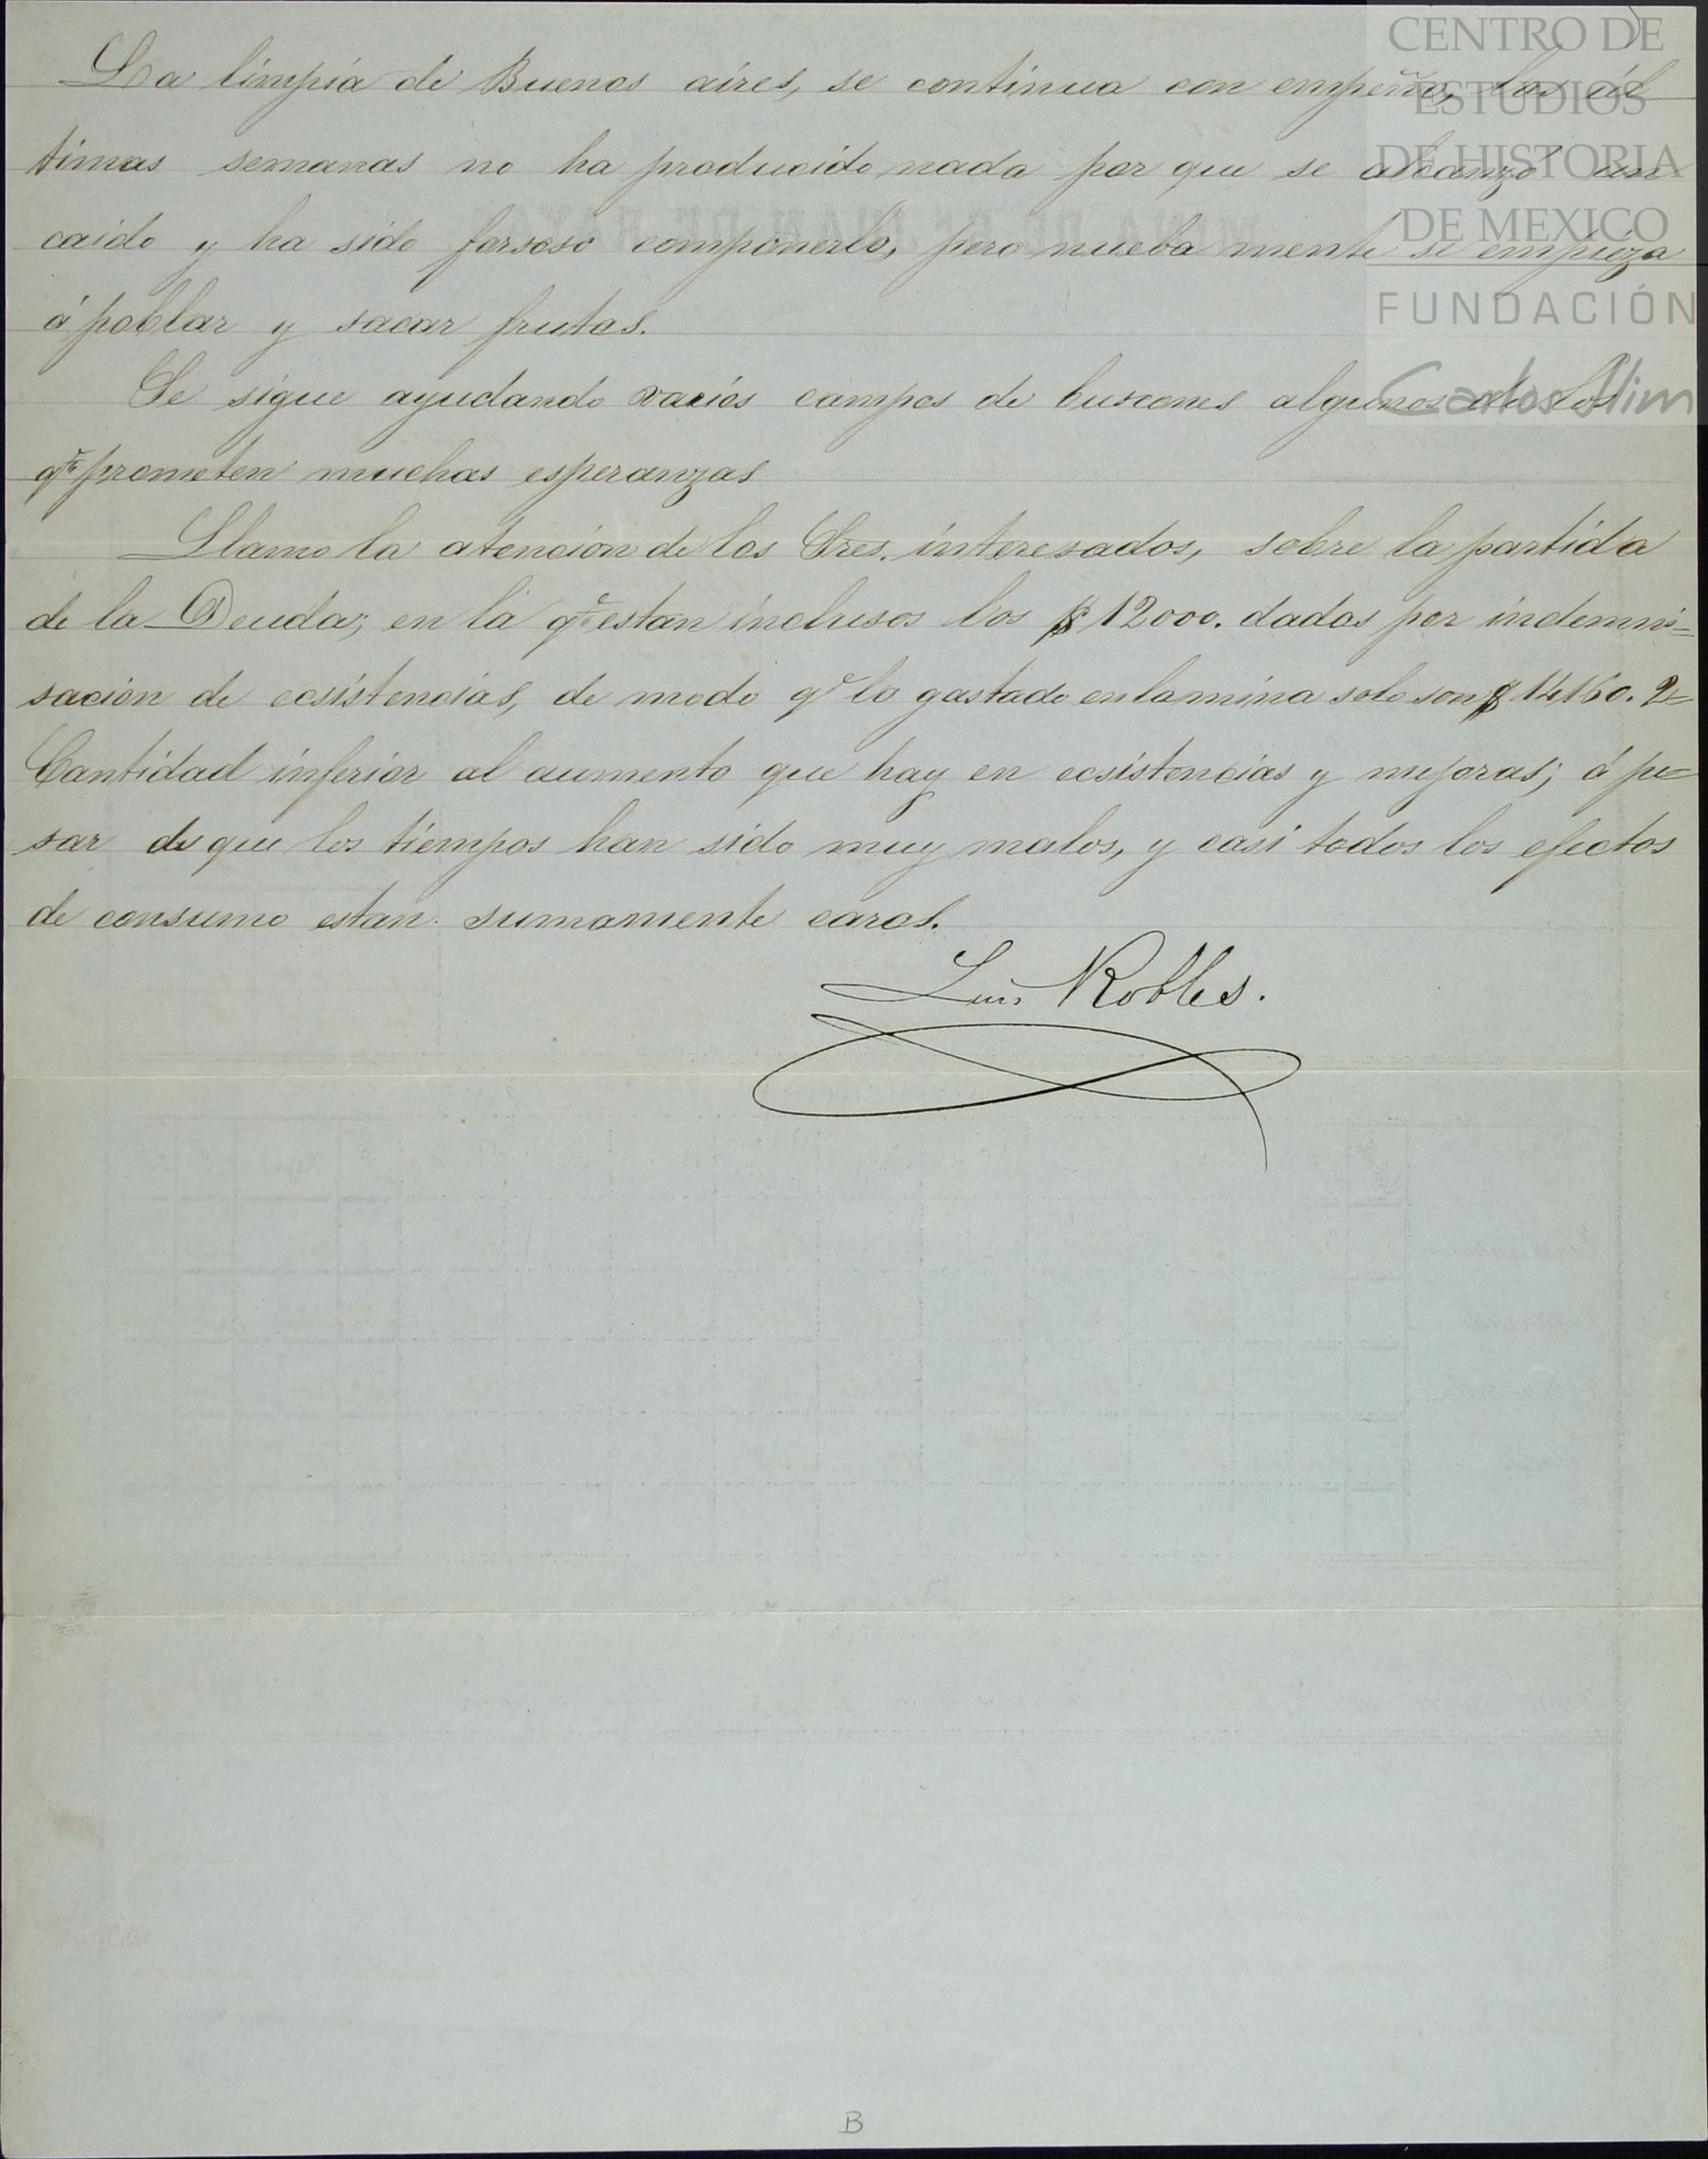 La limpia de Buenos aires, se continua con empeño, las úl
timas semanas no ha producido nada por que se alcanzó un
caido y ha sido forsoso componerlo, pero nueba mente se empieza
á poblar y sacar frutos.
Se sigue ayudando varios campos de buscones algunos de los
qe prometen muchas esperanzas
Llamo la atencion de los Sres. interesados, sobre la partida
de la Deuda; en la qe estan inclusos los $12000. dados por indemni=
sacion de ecsistencias, de modo qe lo gastado en la mina solo son $14160. 2
Cantidad inferior al aumento que hay en ecsistencias y mejoras; á pe=
sar de que los tiempos han sido muy malos, y casi todos los efectos
de consumo estan sumamente caros.
Luis Robles.
B
CENTRO DE
ESTUDIOS
DE HISTORIA
DE MEXICO
FUNDACIÓN
Carlos Slim